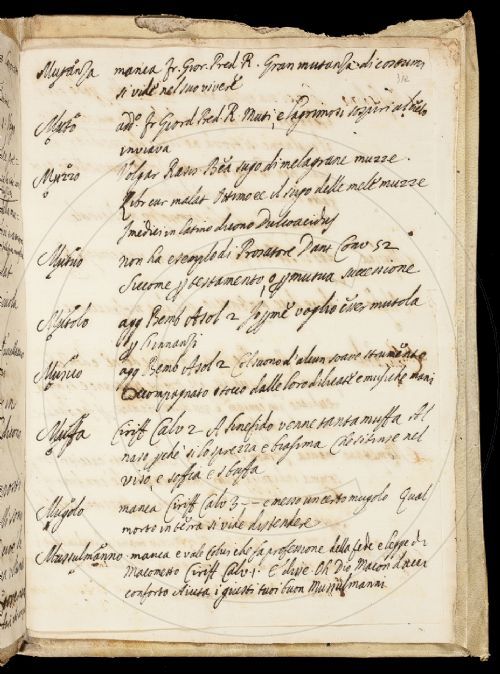 Mutanza manca fr. Gior. Pred. R. Gran mutanza di costumi
si vide nel suo vivere
Muto add. fr Giord. Pred. R. Muti, e lagrimosi sospiri al cielo
inviava
Muzzo Volgar Rasis Bea sugo di melagrane muzze.
Libr cur malat Ottimo ec il sugo delle mele muzze
I medici in latino dicono Dulcoacidus
Mutuo non ha esemplo di Prosatore Dant Conv 52
Siccome testamento o mutua successione
Mutolo agg Bemb Asol 2 Io voglio esser mutola
innanzi
Musico agg Bemb Asol 2 Col suono d'alcun soave strumento
accompagnato tocco dalle loro dilicate e musiche mani
Muffa Ciriff Calv 2 A Sinefido venne tanta muffa Al
naso si lo sprezza e biasima Che si tinse nel
viso, e soffia e sbuffa
Mugolo manca Ciriff Calv 3 — e messo un certo mugolo Qual
morto in terra si vide distendere
Mussulmanno manca e vale colui che fa professione della fede e legge di
Maometto Ciriff Calv 1. E dive Oh Dio Macon
conforto Aiuta i giusti tuoi buon Mussulmanni